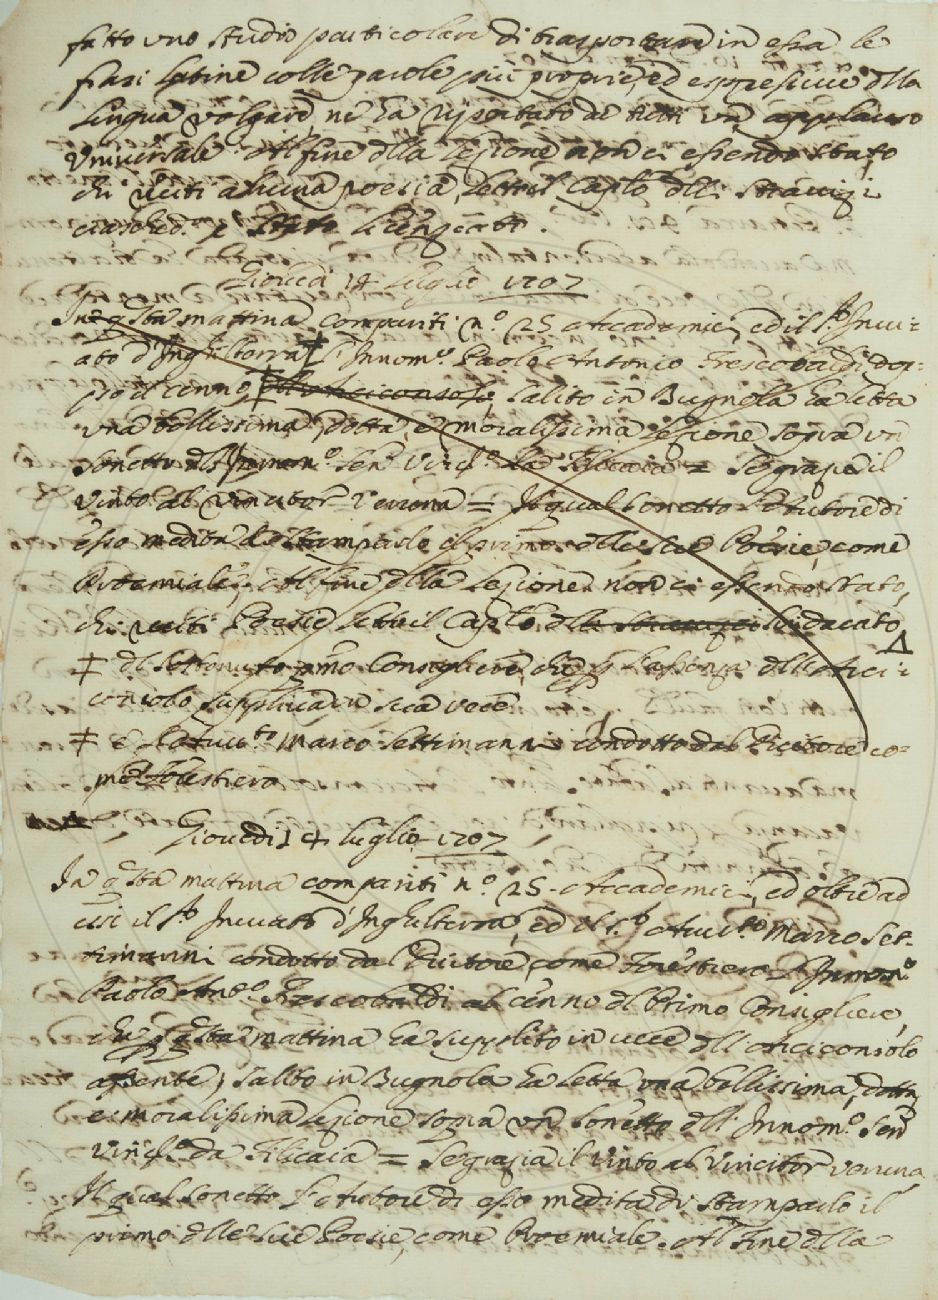 fatto uno studio particolare di trasportare in essa le
frasi latine colle parole più proprie, ed espressive dlla
lingua volgare ne ha riportato da tutti un applauso
universale. Al fine dlla Lezione non ci essendo stato
chi reciti alcuna poesia, letto il Caplo dlli Stravizi
ciasched.º è stato licenziato.
Giovedì 14 Luglio 1707
In qsta mattina compariti n.º 25 Accademici, ed il S.r Invi-
ato d'Inghilterra ‡ l'Innom.º Paolo Antonio Frescobaldi dop-
po il cenno ‡ dll'Arciconsolo, salito in Bugnola ha letta
una bellissima, dotta, e moralissima Lezione sopra un
sonetto dll'Innom.º Sen.r Vinc.º da Filicaia = Se grazia il
vinto al vincitor veruna = Il qual sonetto l'Autore di
esso medita di stamparlo il primo dlle sue Poesie, come
Proemiale. Al fine dlla Lezione non ci essendo stato,
chi reciti Poesie letto il Caplo dlli Stravizi Sindacato
‡ dl Settonuto pmo Consigliere, che p l'assenza dll'Arci-
consolo suppliva in sua vece
‡ e l'Avv.to Marco Settimanni condotto dal Riditore co-
me forestiero
Giovedì 14 luglio 1707
In qsta mattina compariti n.º 25. Accademici, ed oltre ad
essi il S.r Inviato d'Inghilterra, ed il S.r Avv.to Marco Set-
timanni condotto dal Riditore, come Forestiero l'Innom.º
Paolo Ant.º Frescobaldi al cenno dl Primo Consigliere,
che p qsta mattina ha supplito in vece dll'Arciconsolo
assente, salito in Bugnola ha letta una bellissima, dotta,
e moralissima Lezione sopra un sonetto dll'Innom.º Sen.r
Vinc.º da Filicaia = Se grazia il vinto al vincitor veruna
Il qual sonetto l'Autore di esso medita di stamparlo il
primo dlle sue Poesie, come Proemiale. Al fine dlla